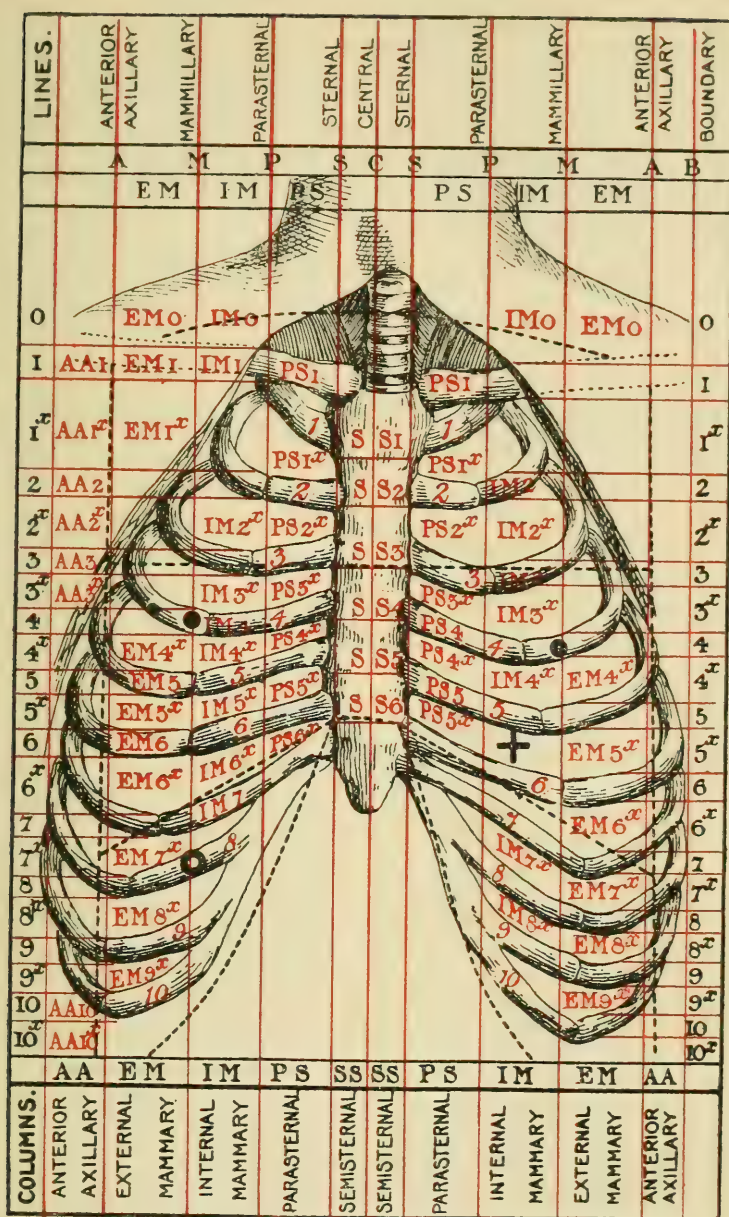 LINES. ANTERIOR AXILLARY MAMMILLARY PARASTERNAL STERNAL CENTRAL STERNAL PARASTERNAL MAMMILLARY ANTERIOR AXILLARY BOUNDARY
A M P S C S P M A B
EM IM PS PS IM EM
0 EM0 IM0 IM0 EM0 0
1 AA1 EM1 IM1 PS1 PS1 1
1ˣ AA1ˣ EM1ˣ 1 S S1 1 1ˣ
PS1ˣ PS1ˣ
2 AA2 2 S S2 2 IM2 2
2ˣ AA2ˣ IM2ˣ PS2ˣ PS2ˣ IM2ˣ 2ˣ
3 AA3 3 S S3 3 3
3ˣ AA3ˣ IM3ˣ PS3ˣ PS3ˣ IM3ˣ 3ˣ
4 IM4 4 S S4 PS4 4 4
4ˣ EM4ˣ IM4ˣ PS4ˣ PS4ˣ IM4ˣ EM4ˣ 4ˣ
5 EM5 5 S S5 PS5 5 5
5ˣ EM5ˣ IM5ˣ PS5ˣ S S6 PS5ˣ EM5ˣ 5ˣ
6 EM6 6 6 6
6ˣ EM6ˣ IM6ˣ PS6ˣ EM6ˣ 6ˣ
7 IM7 7 7
7ˣ EM7ˣ 8 IM7ˣ EM7ˣ 7ˣ
8 8 8
8ˣ EM8ˣ IM8ˣ EM8ˣ 8ˣ
9 9 9 9
9ˣ EM9ˣ EM9ˣ 9ˣ
10 AA10 10 10 10
10ˣ AA10ˣ 10ˣ
AA EM IM PS SS SS PS IM EM AA
COLUMNS. ANTERIOR AXILLARY EXTERNAL MAMMARY INTERNAL MAMMARY PARASTERNAL SEMISTERNAL SEMISTERNAL PARASTERNAL INTERNAL MAMMARY EXTERNAL MAMMARY ANTERIOR AXILLARY